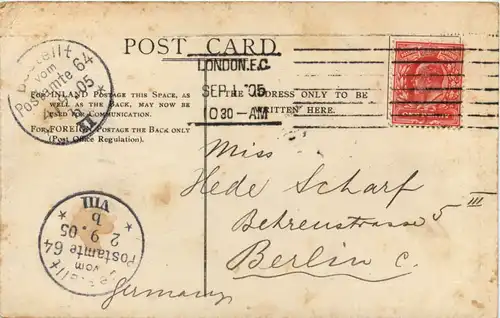 POST CARD
LONDON.E.C
SEP 1 '05
1030-AM
FOR INLAND POSTAGE THIS SPACE, AS
WELL AS THE BACK, MAY NOW BE
USED FOR COMMUNICATION.
FOR FOREIGN POSTAGE THE BACK ONLY
(Post Office Regulation).
THE ADDRESS ONLY TO BE
WRITTEN HERE.
Bestellt
vom
Postamte 64
Miss
Hede Scharf
Behrenstrasse 5 III
Berlin C.
Germany
Bestellt
vom
Postamte 64
2. 9. 05
b
VIII